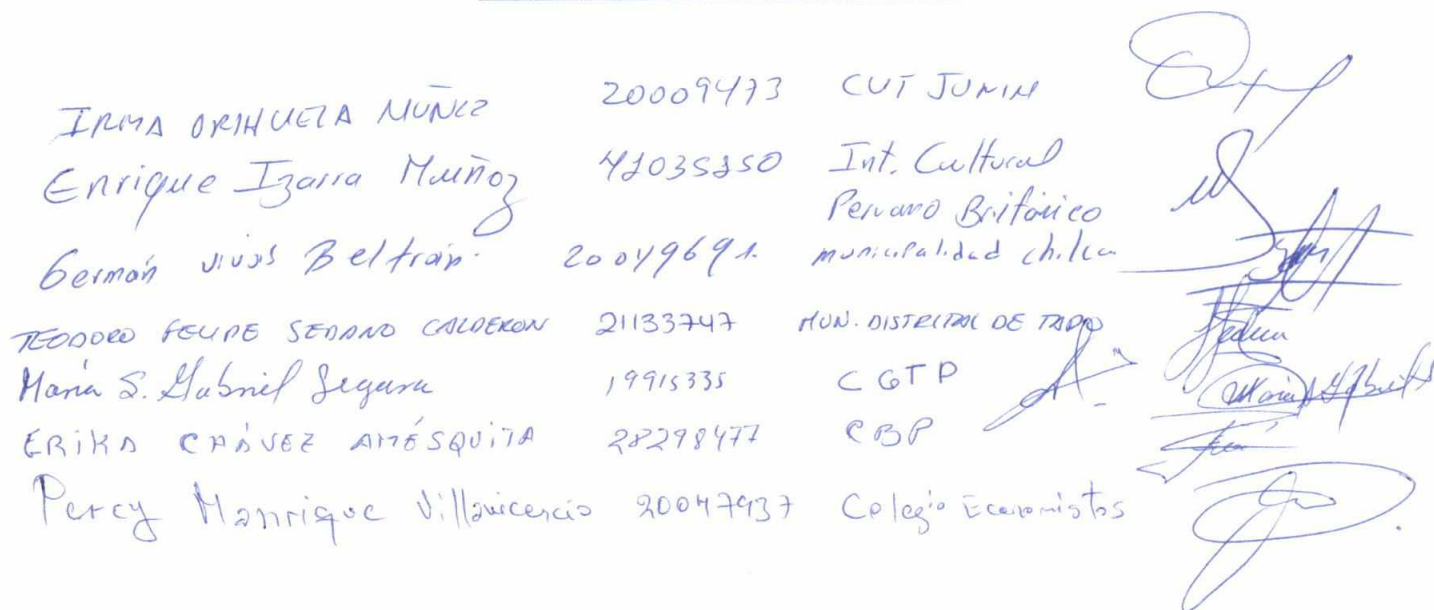 IRMA ORIHUELA MUÑIZ 20009473 CUT JUNIN
Enrique Izarra Muñoz 41035250 Int. Cultural
Peruano Británico
Germán vivas Beltrán. 20049691. municipalidad chilca
TEODORO FELIPE SEDANO CALDERON 21133747 MUN. DISTRITAL DE TAPO
Maria S. Gabriel Segura 19915335 CGTP
ERIKA CHÁVEZ AMÉSQUITA 28298477 CBP
Percy Manrique Villavicencio 20047937 Colegio Economistas